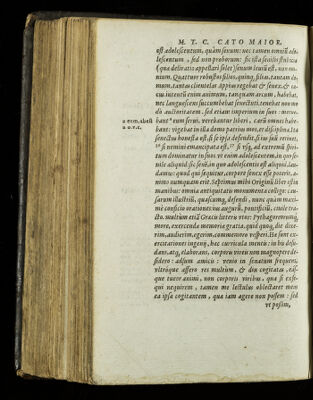 M. T. C. CATO MAIOR.
est adolescentum, quàm senum: nec tamen omniũ ado-
lescentum, sed non proborum: sic ista senilis stultitia
(quæ deliratio appellari solet) senum leuiũ est, non om-
nium. Quattuor robustos filios, quinq; filias, tantam do-
mum, tantas clientelas Appius regebat & senex, & cæ-
cus. intentũ enim animum, tanquam arcum, habebat,
nec languescens succumbebat senectuti. tenebat non mo
dò auctoritatem, sed etiam imperium in suos: metue-
bant ª eum serui, verebantur liberi, carũ omnes habe-
bant: vigebat in illa domo patrius mos, et disciplina. Ita
senectus honesta est, si se ipsa defendit, si ius suũ retinet,
si nemini emancipata est, si vsq; ad extremũ spiri-
tum dominatur in suos. vt enim adolescentem, in quo se-
nile aliquid, sic senẽ, in quo adolescentis est aliquid, lau-
damus: quod qui sequitur, corpore senex esse poterit, a-
nimo numquam erit. Septimus mihi Originũ liber est in
manibus: omnia antiquitatis monumenta colligo: cau-
sarum illustriũ, quascumq; defendi, nunc quàm maxi-
mè conficio orationes: ius augurũ, pontificiũ, ciuile tra-
cto. multùm etiã Græcis litteris vtor: Pythagoreorumq́;
more, exercendæ memoriæ gratia, quid quoq; die dixe-
rim, audierim, egerim, commemoro vesperi. Hæ sunt ex-
ercitationes ingenij, hæc curricula mentis: in his desu-
dans, atq; elaborans, corporis vires non magnopere de-
sidero: adsum amicis: venio in senatum frequens,
vltróque affero res multùm, & diu cogitatas, eás-
que tueor animi, non corporis viribus. quæ si exse-
qui nequirem, tamen me lectulus oblectaret meus
ea ipsa cogitantem, quæ iam agere non possem: sed
vt possim,